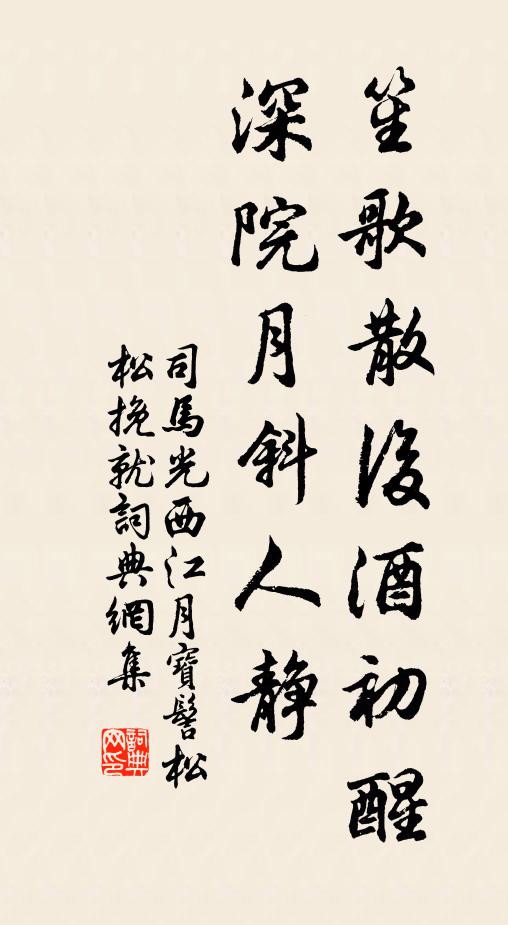 笙歌散後酒初醒
深院月斜人静
司馬光西江月寶髻松
松挽就詞典網集
詞典网印